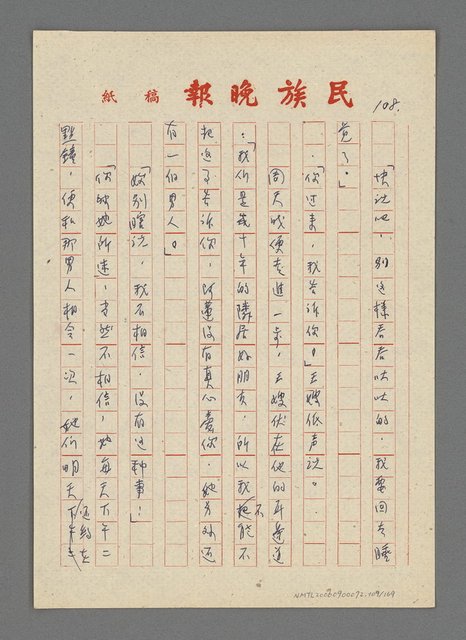 民族晚報 稿紙
108.
「快說吧，別這樣吞吞吐吐的，我要回去睡
覺了。」
「你過來，我告訴你。」王嫂低声說。
周天成便走進一步，王嫂伏在他的耳邊道
：「我們是幾十年的隣居好朋友，所以我不能不
把它告訴你，阿蓮沒有真心愛你，她另外还
有一個男人」。
「妳別瞎說，我不相信，沒有这种事！」
「你被她所迷，当然不相信，她每天下午二
點鐘，便和那男人相会一次，她們明天下午
还約在
NMTL20000900072.109/169